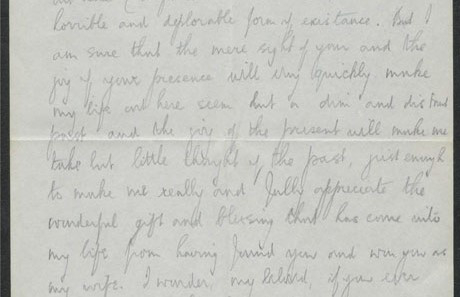 horrible and deplorable form of existance. But I
am sure that the mere sight of you and the
joy of your presence will very quickly make
my life out here seem but a dim and distant
past and the joy of the present will make me
take but little thought of the past, just enough
to make me really and fully appreciate the
wonderful gift and blessing that has come into
my life from having found you and won you as
my wife. I wonder, my beloved, if you ever